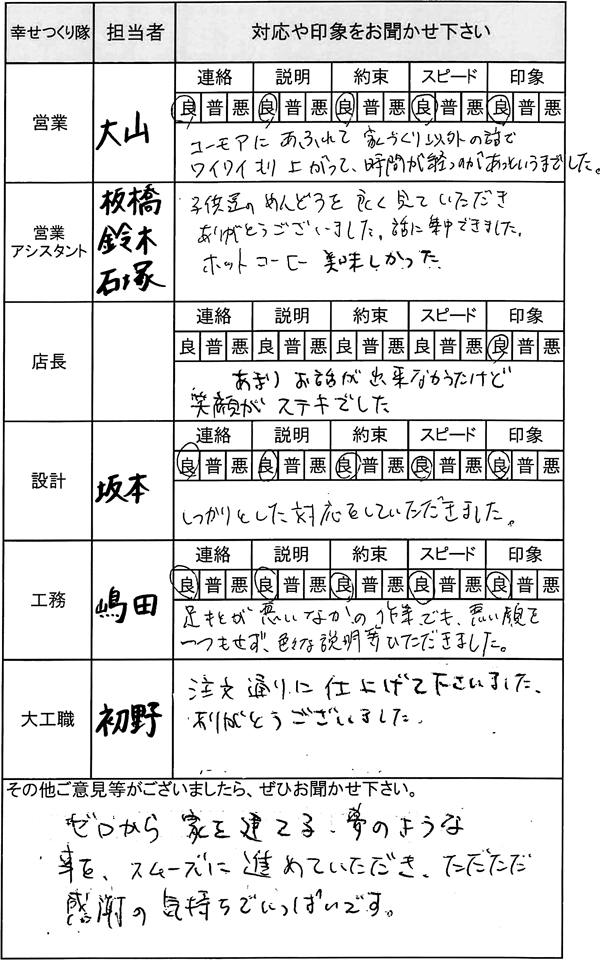 幸せつくり隊 担当者 対応や印象をお聞かせ下さい
連絡 説明 約束 スピード 印象
営業 大山 良 普 悪 良 普 悪 良 普 悪 良 普 悪 良 普 悪
ユーモアに あふれて 家づくり以外の話で
ワイワイもり上がって、時間が経つのがあっというまでした。
営業
アシスタント
板橋
鈴木
石塚
子供達のめんどうを良く見ていただき
ありがとうございました。話に集中できました。
ホットコーヒー 美味しかった
店長
連絡 説明 約束 スピード 印象
良 普 悪 良 普 悪 良 普 悪 良 普 悪 良 普 悪
あまり お話が出来なかったけど
笑顔が ステキでした
設計 坂本
連絡 説明 約束 スピード 印象
良 普 悪 良 普 悪 良 普 悪 良 普 悪 良 普 悪
しっかりとした対応をしていただきました。
工務 嶋田
連絡 説明 約束 スピード 印象
良 普 悪 良 普 悪 良 普 悪 良 普 悪 良 普 悪
足もとが悪いなかの作業でも、悪い顔を
一つもせず、色々な説明等いただきました。
大工職 初野
注文通りに仕上げて下さいました、
ありがとうございました。
その他ご意見等がございましたら、ぜひお聞かせ下さい。
ゼロから 家を建てる、夢のような
事を、スムーズに進めていただき、ただただ
感謝の気持ちでいっぱいです。